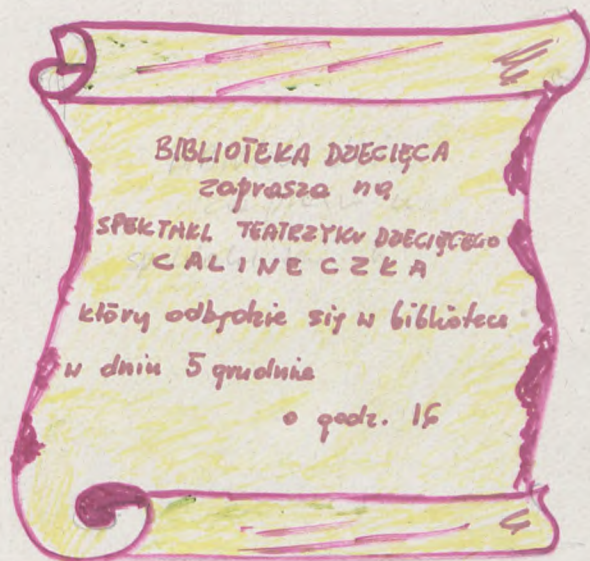 BIBLIOTEKA DZIECIĘCA
zaprasza na
SPEKTAKL TEATRZYKU DZIECIĘCEGO
CALINECZKA
który odbędzie się w bibliotece
w dniu 5 grudnia
o godz. 16